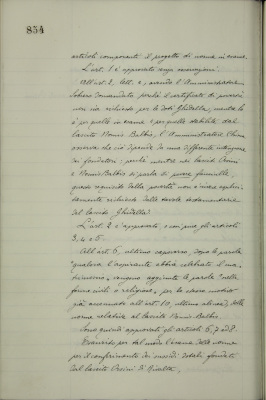 854
articoli componenti il progetto di norme in esame.
L'art. 1 è approvato senza osservazioni.
All'art. 2, lett. a, avendo l'Amministratore
domandato perchè il certificato di povertà
non sia richiesto per le doti Ghidella, mentre lo
è per quelle in esame e per quelle stabilite dal
lascito Nomis Balbis, l'Amministratore China
osserva che ciò dipende da una differente
dei fondatori: perchè mentre nei lasciti Orsini
e Nomis Balbis si parla di povere fanciulle,
requisito della povertà non è invece
richiesto dalle tavole testamentarie
del lascito Ghidella.
L'art. 2 è approvato, e così pure gli articoli
3, 4 e 5.
All'art. 6, ultimo capoverso, dopo le parole
"qualora l'aspirante abbia celebrato il
" vengono aggiunte le parole "nelle
forme civili e religiose", per lo stesso motivo
già accennato all'art. 10, ultimo alinea, delle
norme relative al lascito Nomis Balbis.
Sono quindi approvati gli articoli 6, 7 ed 8.
Esaurito per tal modo l'esame delle norme
per il conferimento dei sussidi dotali fondati
dal lascito Orsini di